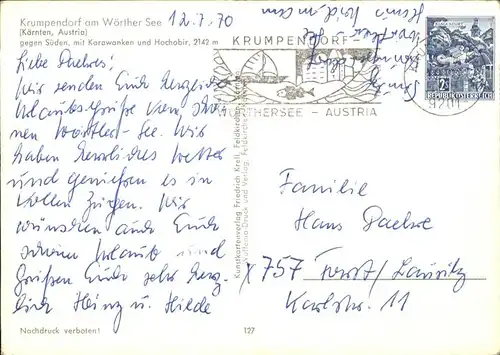 Krumpendorf am Wörther See
(Kärnten, Austria)
gegen Süden, mit Karawanken und Hochobir, 2142 m
12.7.70
Liebe Paelkes!
Wir senden Euch herzliche
Urlaubsgrüße vom schö-
nen Wörther-See. Wir
haben herrliches Wetter
und genießen es in
vollen Zügen. Wir
wünschen auch Euch
schönen Urlaub und
grüßen Euch sehr herz-
lich Heinz und Hilde
Nachdruck verboten!
127
Kunstkartenverlag Friedrich Kreil, Feldkirchen, Kärnten
KRUMPENDORF
WÖRTHERSEE - AUSTRIA
9201
REPUBLIK ÖSTERREICH
Familie
Hans Paelke
X 757 Forst/Lausitz
Karlstr. 11